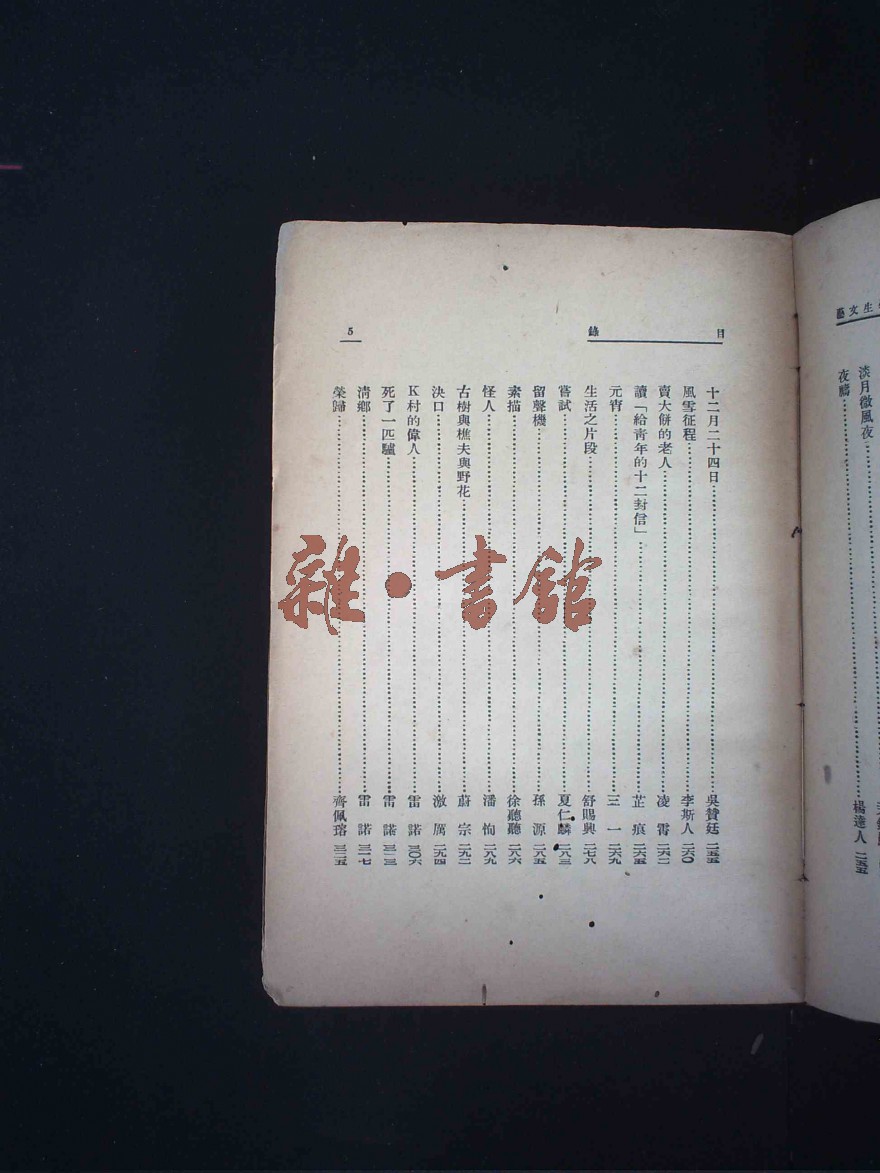 生文藝
淡月微風夜
夜鶯……楊達人 二五五
目錄
5
十二月二十四日……吳贊廷 二五五
風雪征程……李斯人 二六〇
賣大餅的老人……凌霄 二六二
讀「給青年的十二封信」……芷痕 二六五
元宵……三一 二六九
生活之片段……舒賜興 二七八
嘗試……夏仁麟 二八三
留聲機……孫源 二八五
素描……徐聽聽 二八六
怪人……潘恂 二八九
古樹與樵夫與野花……蔚宗 二九二
決口……激厲 二九四
K村的偉人……雷諾 三〇六
死了一匹驢……雷諾 三一三
清鄉……雷諾 三一七
榮歸……齊佩瑢 三二五
雜·書館